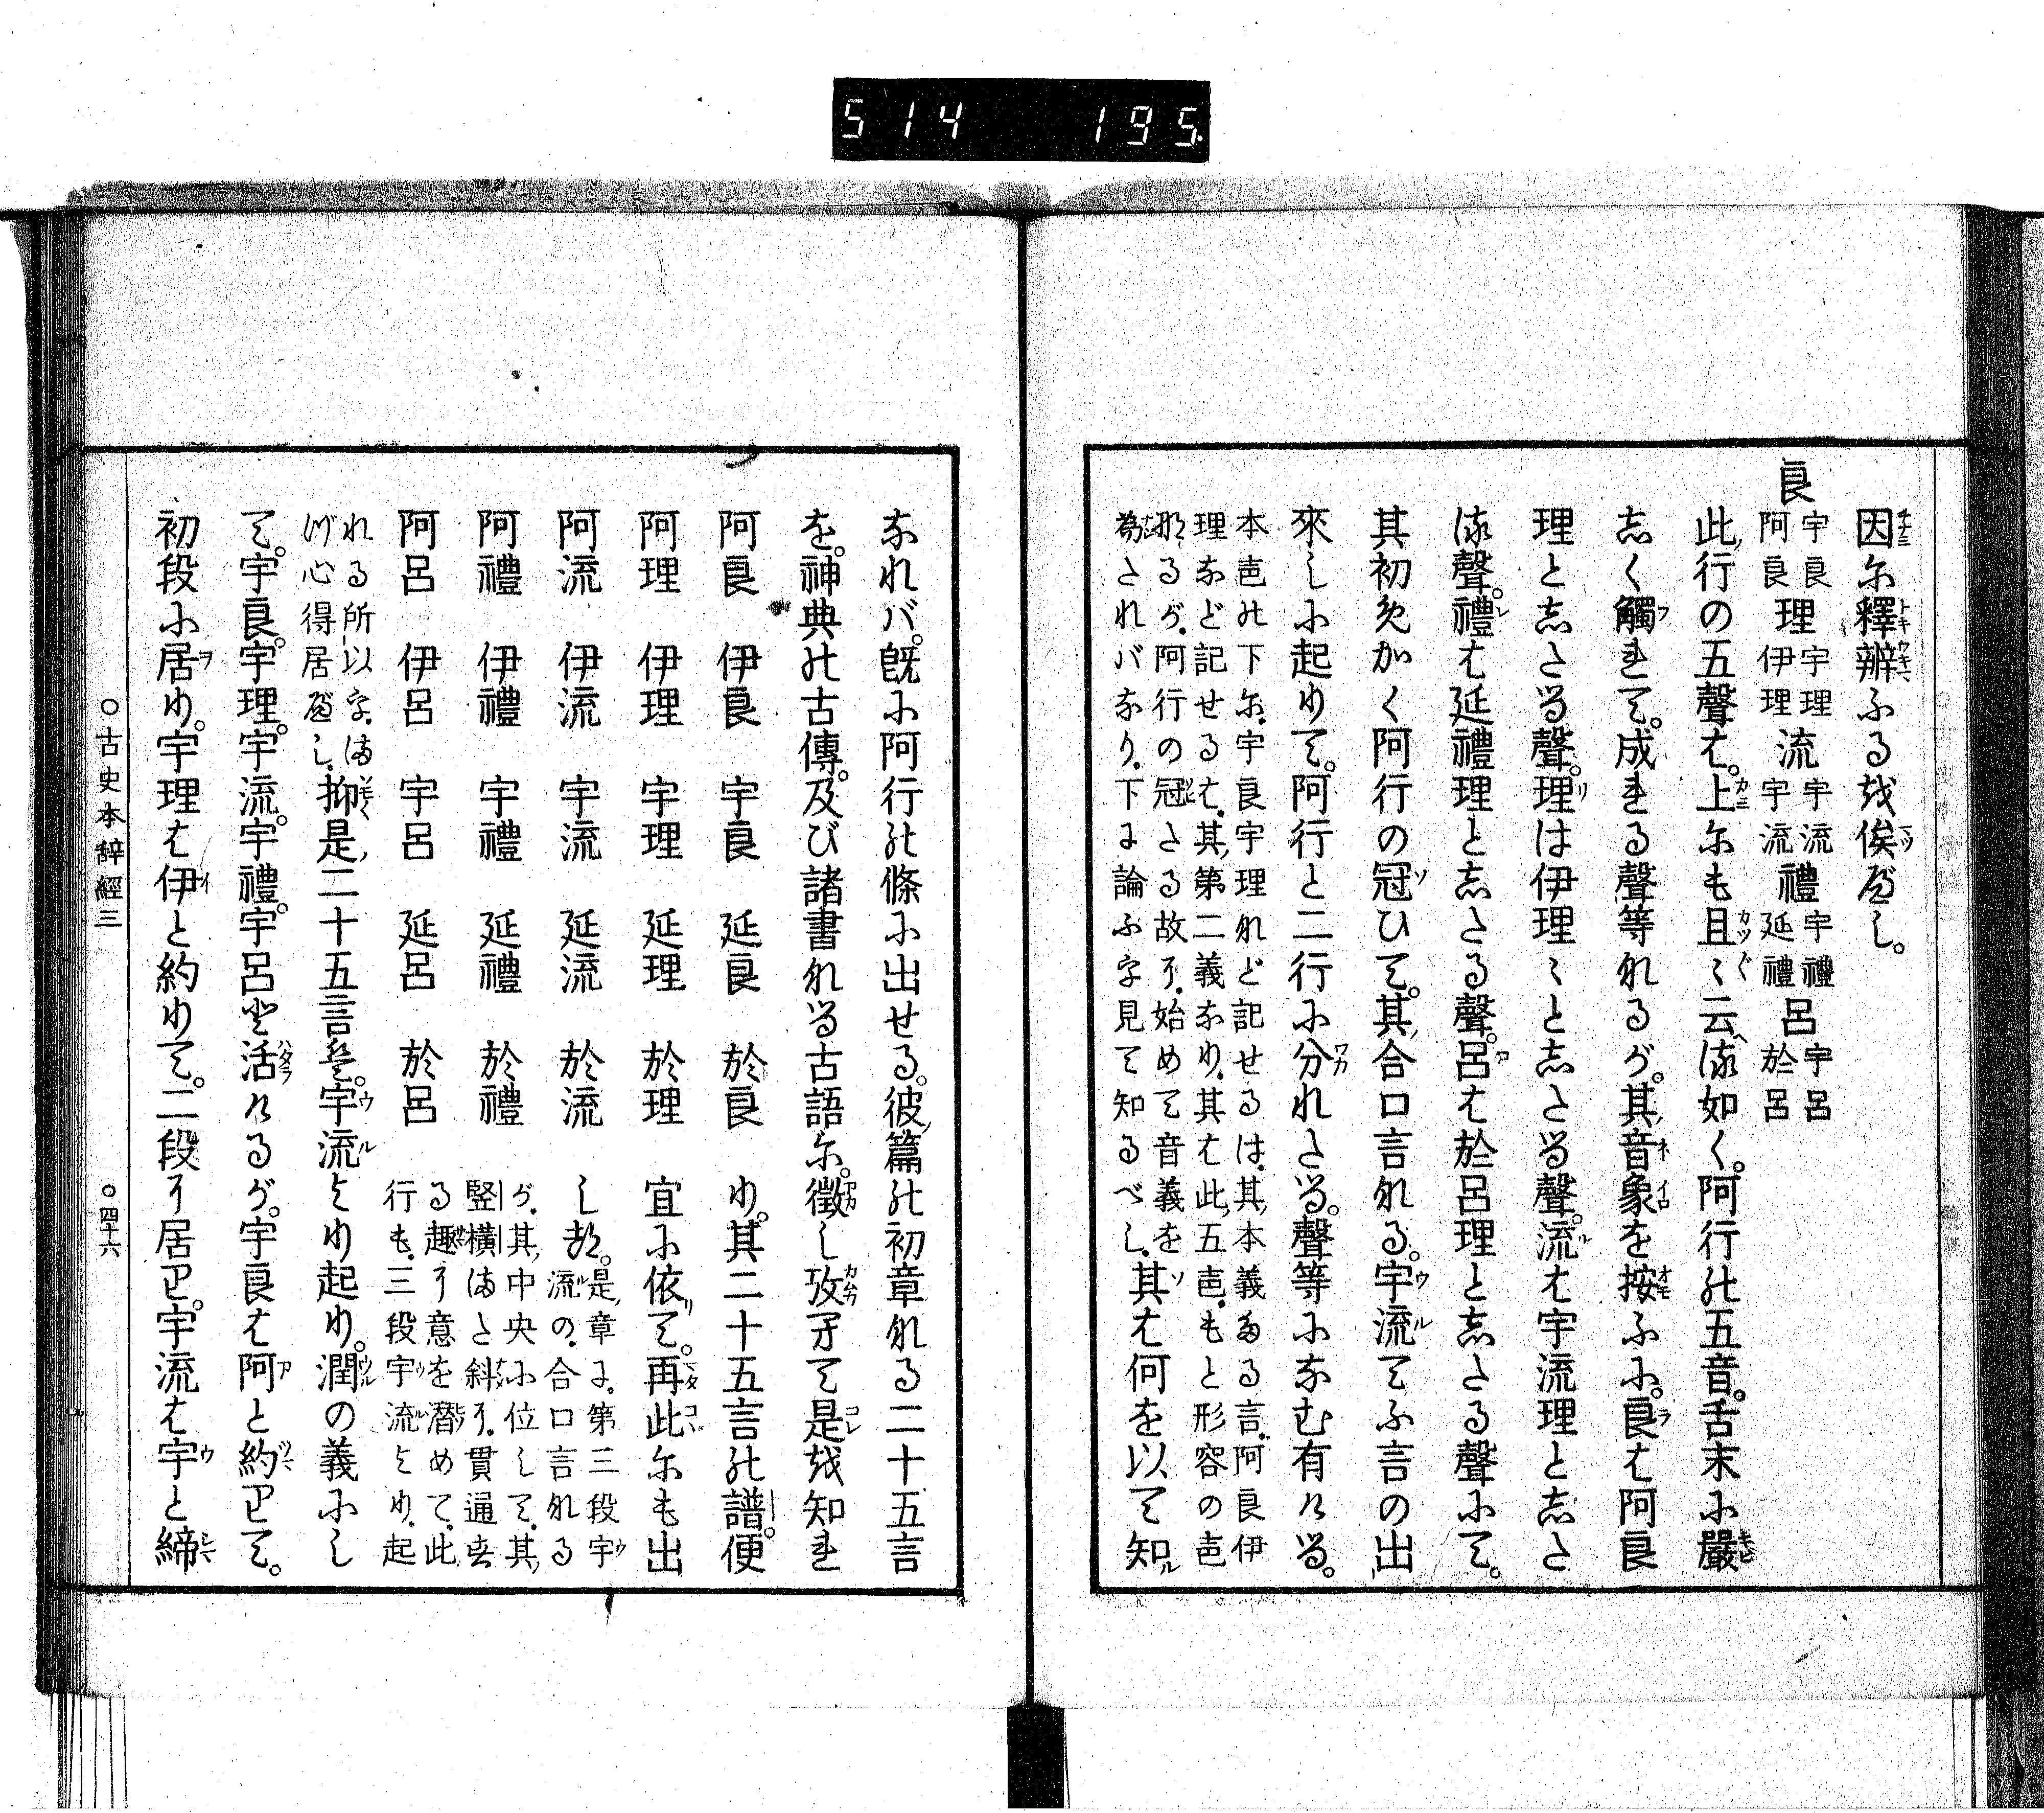 514 195
因に釋辨ふるを俟べし。
良 宇良 阿良 理 宇理 伊理 流 宇流 宇流 禮 宇禮 延禮 呂 宇呂 於呂
此行の五聲は。上にも且〻云る如く。阿行の五音。舌末に嚴
しく觸れて。成れる聲等なるが。其音象を按ふに。良は阿良
理としたる聲。理は伊理〻としたる聲。流は宇流理とした
る聲。禮は延禮理としたる聲。呂は於呂理としたる聲にて。
其初めかく阿行の冠ひて。其合口言なる。宇流てふ言の出
來しに起りて。阿行と二行に分れたる。聲等になむ有ける。
本音の下に。宇良宇理など記せるは。其本義ある言。阿良伊
理など記せるは。其第二義なり。其は此五音。もと形容の音
なるが。阿行の冠たる故に。始めて音義を
為されバなり。下に論ふを見て知るべし。其は何を以て知
なれバ。既に阿行の條に出せる。彼篇の初章なる二十五言
を。神典の古傳。及び諸書なる古語に。徴し攷へて是を知れ
阿良 伊良 宇良 延良 於良 り。其二十五言の譜。便
阿理 伊理 宇理 延理 於理 宜に依て。再此にも出
阿流 伊流 宇流 延流 於流 し訖。是章は。第三段宇流の。合口言なる
阿禮 伊禮 宇禮 延禮 於禮 が。其中央に位して。其竪横また斜に。貫通せ
阿呂 伊呂 宇呂 延呂 於呂 る趣に意を潛めて。此行も。三段宇流より起
れる所以を。まづ心得居べし。抑是二十五言は。宇流より起り。潤の義にし
て。宇良。宇理。宇流。宇禮。宇呂と活けるが。宇良は阿と約りて。
初段に居り。宇理は伊と約りて。二段に居り。宇流は宇と締
○古史本辭經三 ○四十六